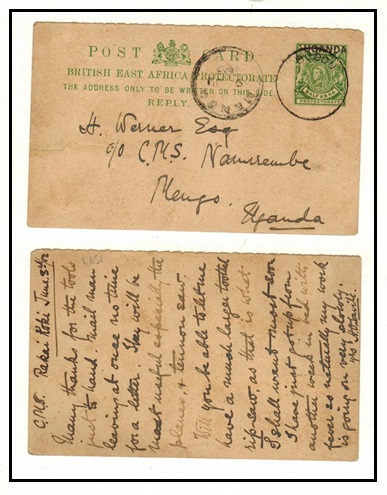 POST CARD
BRITISH EAST AFRICA PROTECTORATE
THE ADDRESS ONLY TO BE WRITTEN ON THIS SIDE
REPLY.
UGANDA
HALF ANNA
PROTECTORATE
MENGO
H. Werner Esq
c/o C.M.S. Namirembe
Mengo.
Uganda
C.M.S. Rakai Koki June 5th/02
Many thanks for the tools
just to hand. Mail man
leaving at once no time
for a letter. They will be
most useful especially the
planes & tennon saw.
Will you be able to let me
have a much larger toothed
rip saw as that is what
I shall want most soon
I have just got up from
another week in bed with
fever so naturally my work
is going on very slowly.